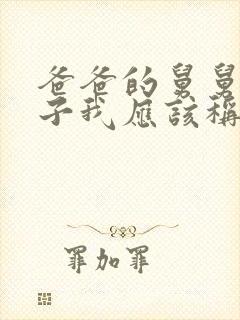 爸爸的舅舅
子我應該稱
罪加罪